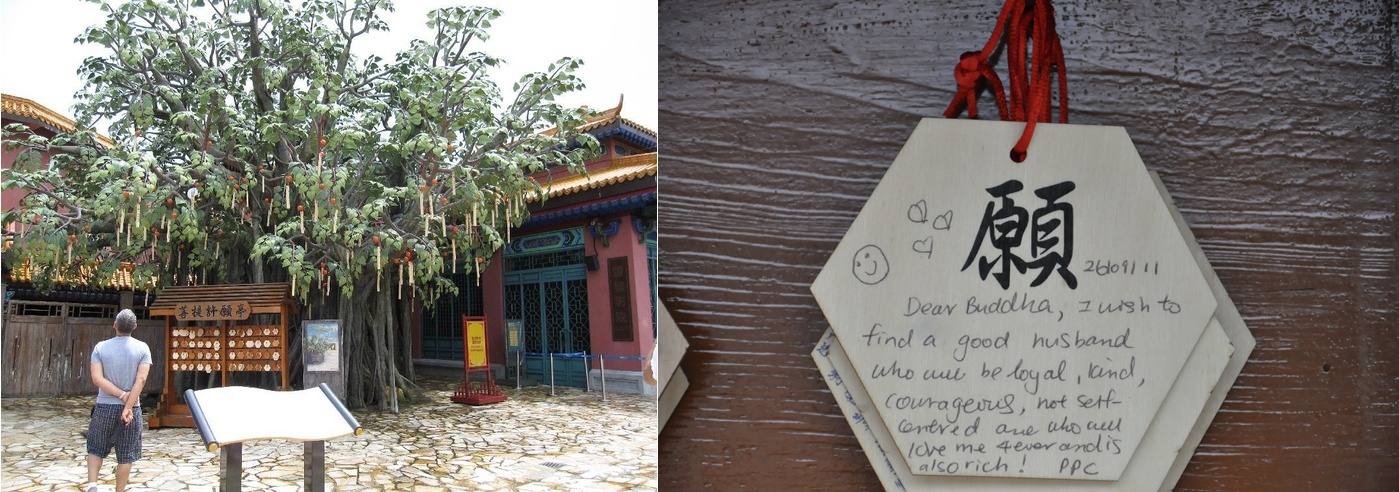 菩提許願亭
願
26/09/11
Dear Buddha, I wish to
find a good husband
who will be loyal, kind,
courageous, not self-
centred and who will
love me 4ever and is
also rich! PPC